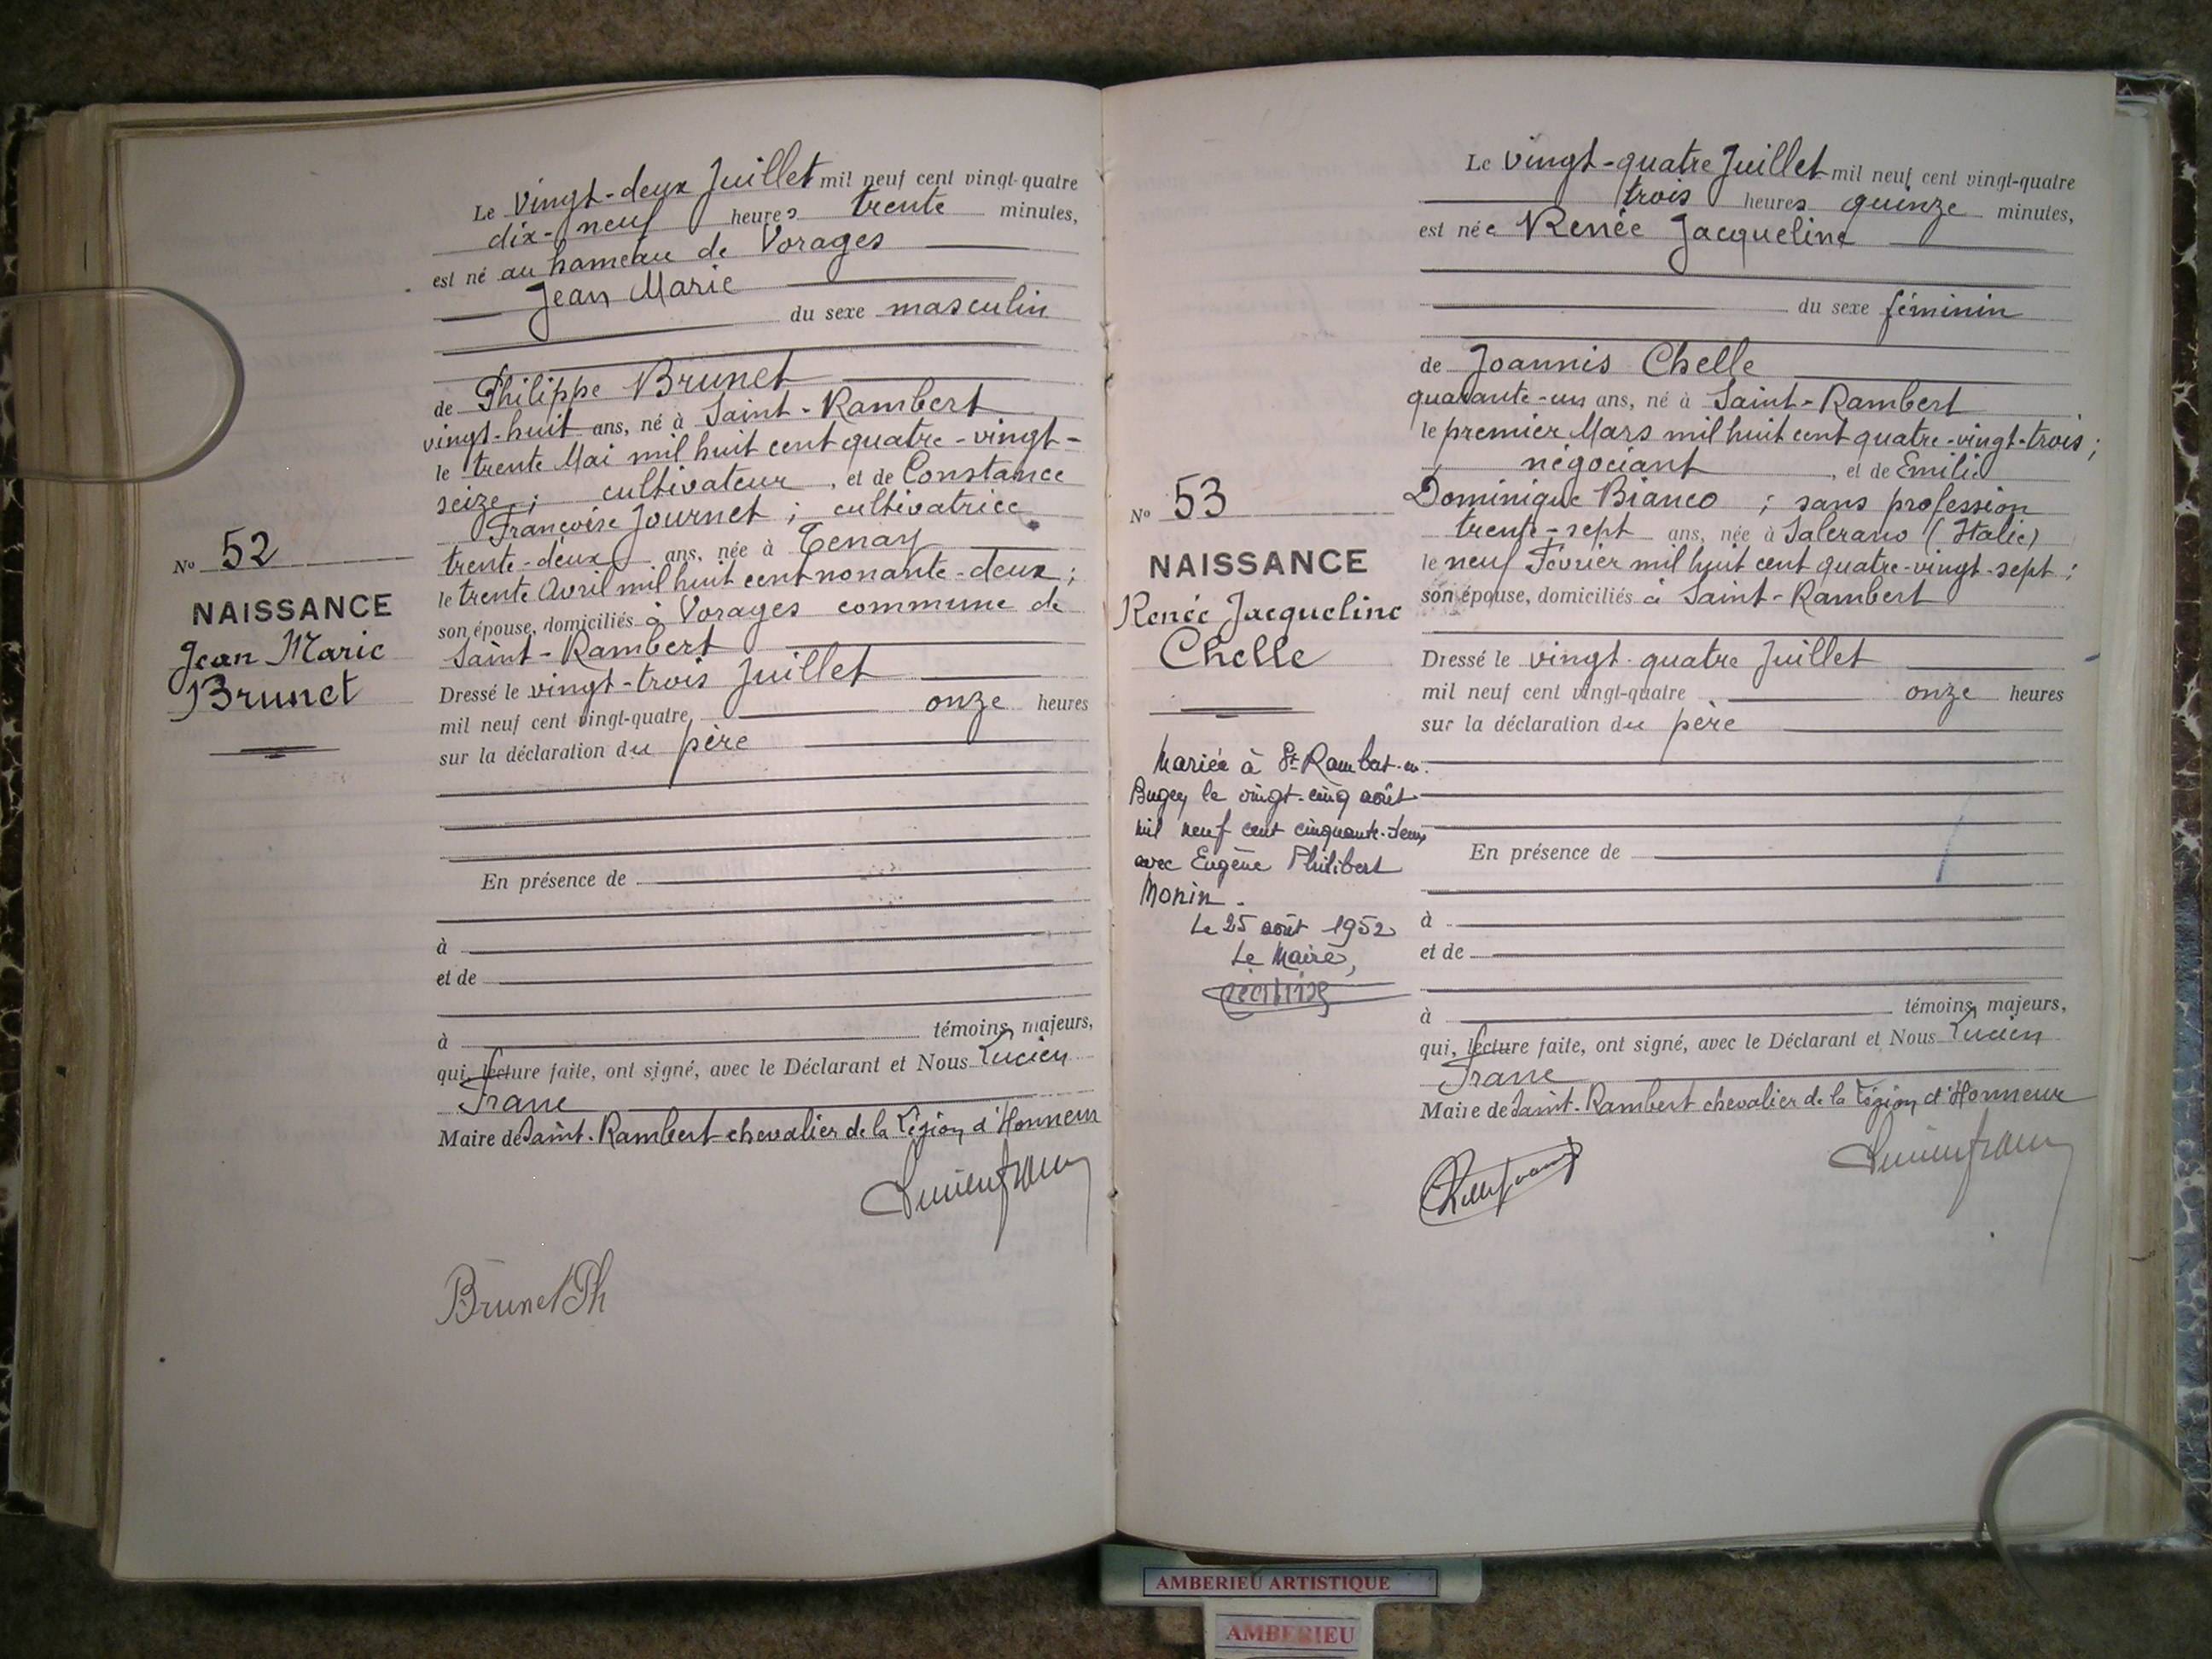 Le vingt-deux Juillet mil neuf cent vingt-quatre
dix-neuf heures trente minutes,
est né au hameau de Vorages
Jean Marie
du sexe masculin
de Philippe Brunet
vingt-huit ans, né à Saint-Rambert
le trente Mai mil huit cent quatre-vingt-
seize ; cultivateur, et de Constance
Françoise Journet ; cultivatrice
trente-deux ans, née à Tenay
le trente Avril mil huit cent nonante-deux ;
son épouse, domiciliés à Vorages commune de
Saint-Rambert
Dressé le vingt-trois Juillet
mil neuf cent vingt-quatre onze heures
sur la déclaration du père
En présence de
à
et de
à témoins majeurs,
qui, lecture faite, ont signé, avec le Déclarant et Nous Lucien
Franc
Maire de Saint-Rambert chevalier de la Légion d'Honneur
Brunet Ph
No 52
NAISSANCE
Jean Marie
Brunet
Le vingt-quatre Juillet mil neuf cent vingt-quatre
trois heures quinze minutes,
est née Renée Jacqueline
du sexe féminin
de Joannis Chelle
quarante-un ans, né à Saint-Rambert
le premier Mars mil huit cent quatre-vingt-trois ;
négociant, et de Emilie
Dominique Bianco ; sans profession
trente-sept ans, née à Salerano (Italie)
le neuf Février mil huit cent quatre-vingt-sept ;
son épouse, domiciliés à Saint-Rambert
Dressé le vingt-quatre Juillet
mil neuf cent vingt-quatre onze heures
sur la déclaration du père
En présence de
à
et de
à témoins majeurs,
qui, lecture faite, ont signé, avec le Déclarant et Nous Lucien
Franc
Maire de Saint-Rambert chevalier de la Légion d'Honneur
No 53
NAISSANCE
Renée Jacqueline
Chelle
Mariée à St Rambert-en-
Bugey le vingt-cinq août
mil neuf cent cinquante-deux
avec Eugène Philibert
Monin.
Le 25 août 1952
Le Maire,
AMBERIEU ARTISTIQUE
AMBERIEU